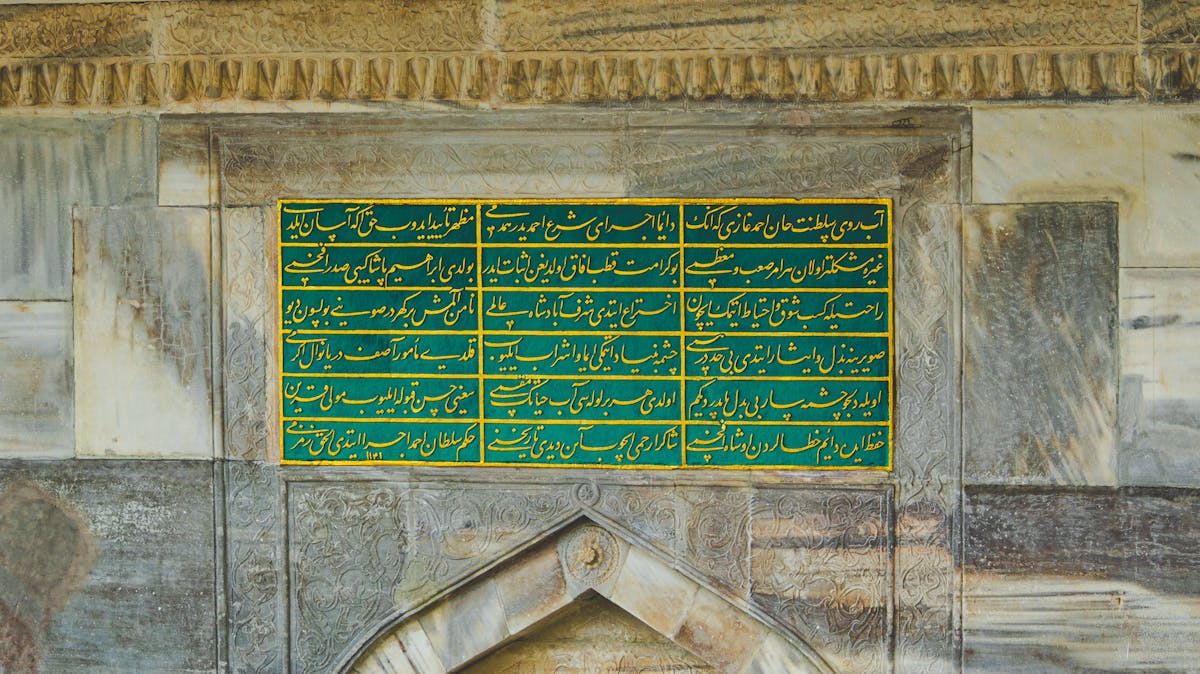 آب روی سلطنت خان احمد غازی که انك دائما اجرای شرع احمدیدر همدمی مظهر تأیید ایدوب حق
غیره مشکل اولان مرام صعب و معظمی بو کرامت قطب افاق اولدیغن اثبات ایدر بولدی ابراهیم پاشا کیبی صدر افخمی
راحتیله کسب شوق و احتیاط ایتمك ایچون اختراع ایتدی شرف آباد شاه عالمی بر کهر در صوینی بولسون دیو
صویرینه بذل و ایثار ایتدی بی حد درهمی چشمه بنیاد ایتمکی ایما و اشراب ایلیوب قلدی مأمور آصف دریا نوال اکرمی
اویله دلجو چشمه یاپدی بی بدل اولدی هر بر لوله سی آب حیاتك مقسمی سعینی حسن قبوله ایلیوب مولی قرین
حفظ ایده دائم خطالردن او شاه افخمی شاکرا رحمی ایچوب آبن دیدی تاریخنی حکم سلطان احمد اجرا ایتدی الحق زمزمی
۱۱۴۱